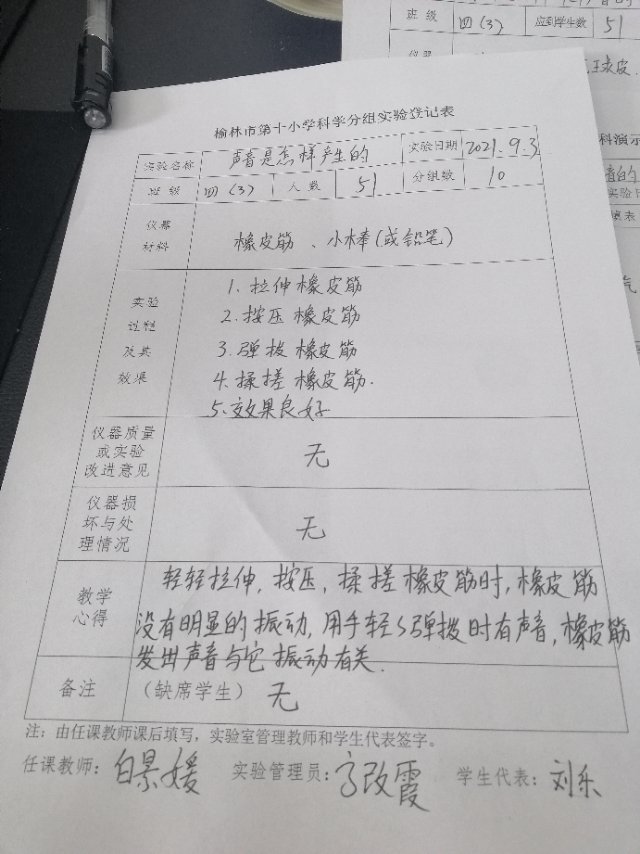 班级 四(3) 应到学生数 51
仪器
科演示
榆林市第十小学科学分组实验登记表
实验名称 声音是怎样产生的 实验日期 2021.9.3
班级 四(3) 人数 51 分组数 10
仪器
材料
橡皮筋、小木棒(或铅笔)
实验
过程
及其
效果
1.拉伸橡皮筋
2.按压橡皮筋
3.弹拨橡皮筋
4.揉搓橡皮筋.
5.效果良好
仪器质量
或实验
改进意见
无
仪器损
坏与处
理情况
无
教学
心得
轻轻拉伸,按压,揉搓橡皮筋时,橡皮筋
没有明显的振动,用手轻轻弹拨时有声音,橡皮筋
发出声音与它振动有关.
备注 (缺席学生) 无
注:由任课教师课后填写,实验室管理教师和学生代表签字。
任课教师:白景媛 实验管理员:高改霞 学生代表:刘乐